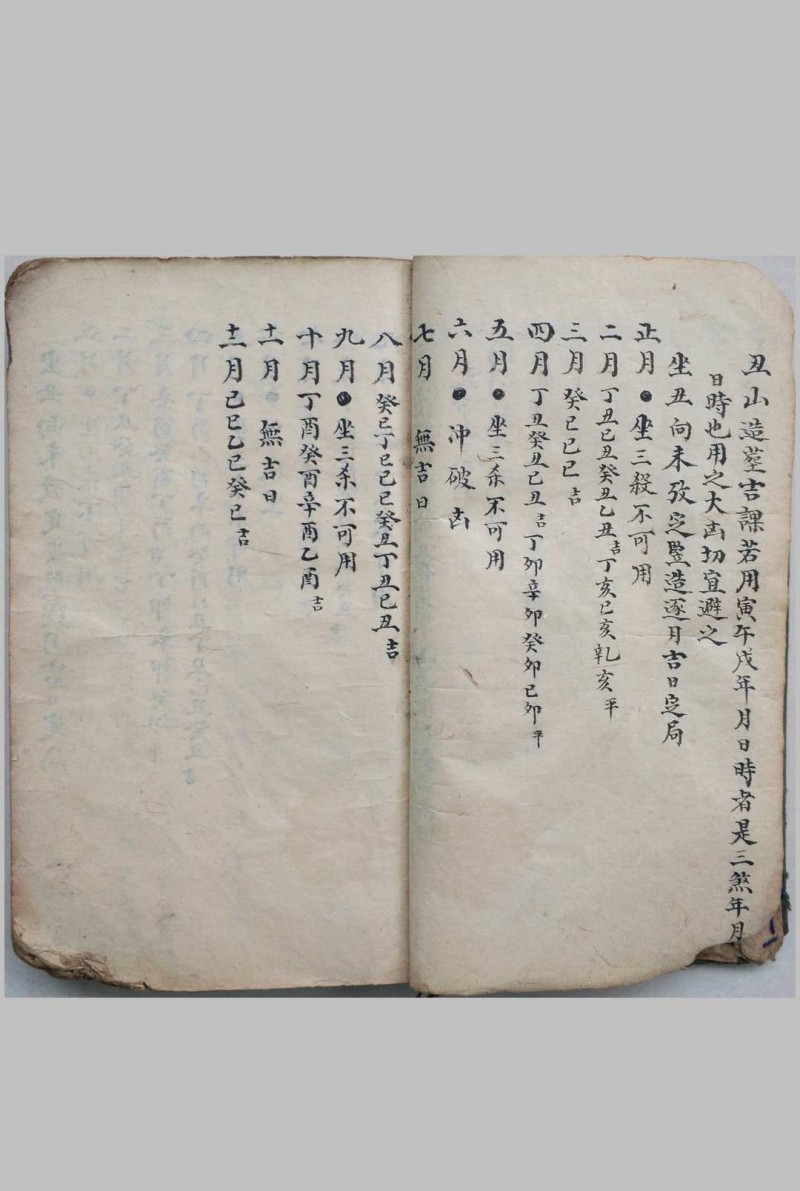 丑山造葬吉課若用寅午戌年月日時者是三煞年月
日時也用之大凶切宜避之
坐丑向未攷定竪造逐月吉日定局
正月●坐三殺不可用
二月丁丑己丑癸丑乙丑吉丁亥己亥乹亥平
三月癸巳己巳吉
四月丁丑癸丑己丑吉丁卯辛卯癸卯己卯平
五月●坐三杀不可用
六月●冲破凶
七月 無吉日
八月癸巳丁巳己巳癸丑丁丑己丑吉
九月●坐三杀不可用
十月丁酉癸酉辛酉乙酉吉
十一月●無吉日
十二月己巳乙巳癸巳吉